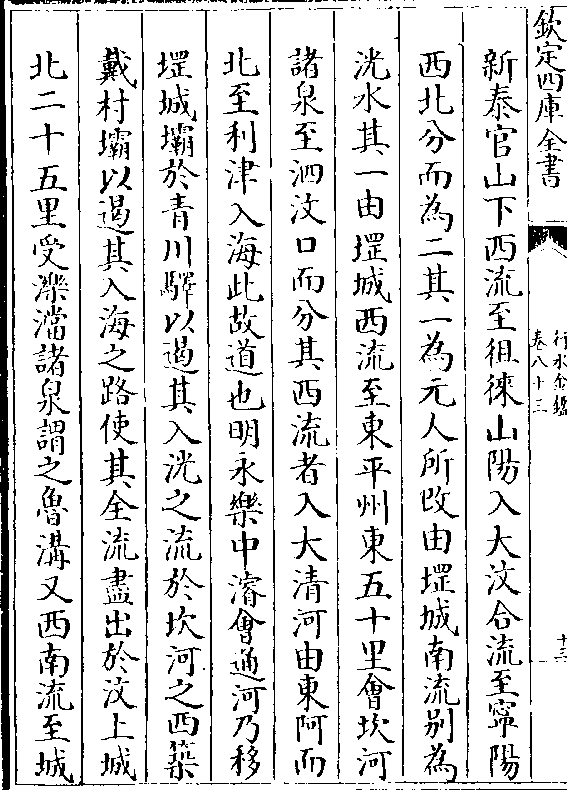 欽定四庫全書
行水金鑑
卷八十三
十三
新泰官山下西流至徂徠山陽入大汶合流至寧陽
西北分而為二其一為元人所改由堽城南流别為
洸水其一由堽城西流至東平州東五十里會坎河
諸泉至泗汶口而分其西流者入大清河由東阿而
北至利津入海此故道也明永樂中濬會通河乃移
堽城壩於青川驛以遏其入洸之流於坎河之西築
戴村壩以遏其入海之路使其全流盡出於汶上城
北二十五里受濼澢諸泉謂之魯溝又西南流至城